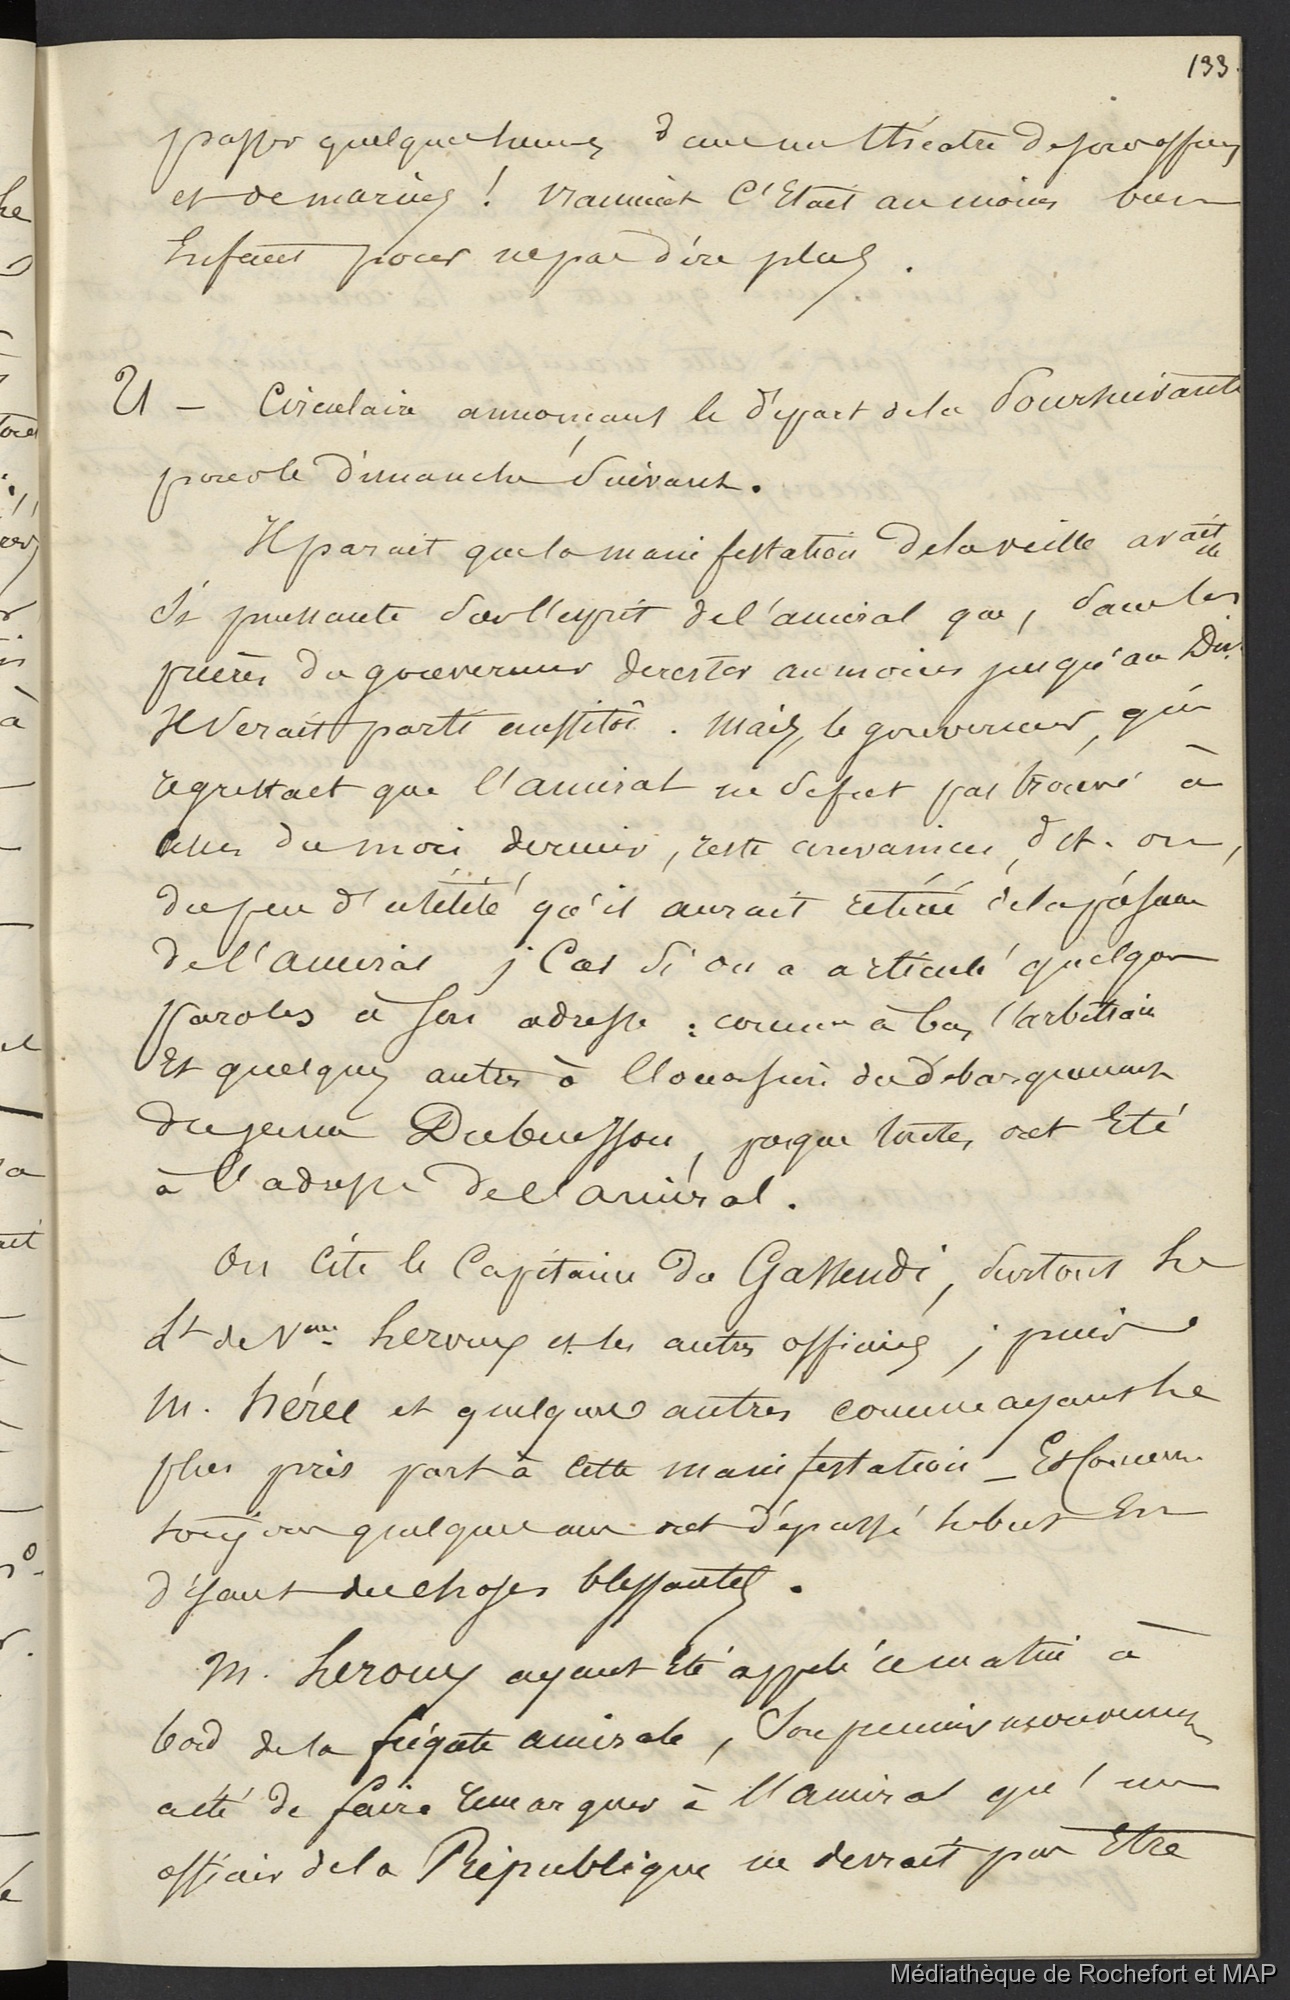 133.
passer quelques heures dans un théatre de sous officiers
et de marins ! vraiment C'Etait au moins bon
Enfant pour ne pas dire plus.
U — Circulaire annonçant le départ de la Poursuivante
pour le dimanche suivant.
Il parait que la manifestation de la veille avait été
si puissante sur l'esprit de l'amiral que, sans les
prières du gouverneur de rester au moins jusqu'au Dim.
Il serait parti aussitôt. Mais, le gouverneur, qui
regrettait que l'amiral ne se fut pas trouvé à
du mois dernier, reste convaincu, dit-on,
du peu d'utilité qu'il aurait retiré de la présence
de l'amiral ; Car si on a articulé quelques
paroles à son adresse : comme à bas l'arbitraire
Et quelques autres à l'occasion du débarquement
du jeune Dubuisson, presque toutes ont Eté
à l'adresse de l'amiral.
On Cite le Capitaine du Gassendi, surtout le
Lt de Vau Leroux et les autres officiers ; puis
M. Hérel et quelques autres comme ayant le
plus pris part à cette manifestation — Et Comme
toujours quelques uns ont dépassé le but En
disant des choses blessantes.
M. Leroux ayant Eté appelé ce matin à
bord de la frégate amirale, Son premier mouvement
a été de faire remarquer à l'amiral qu'un
officier de la République ne devrait pas Etre
Médiathèque de Rochefort et MAP